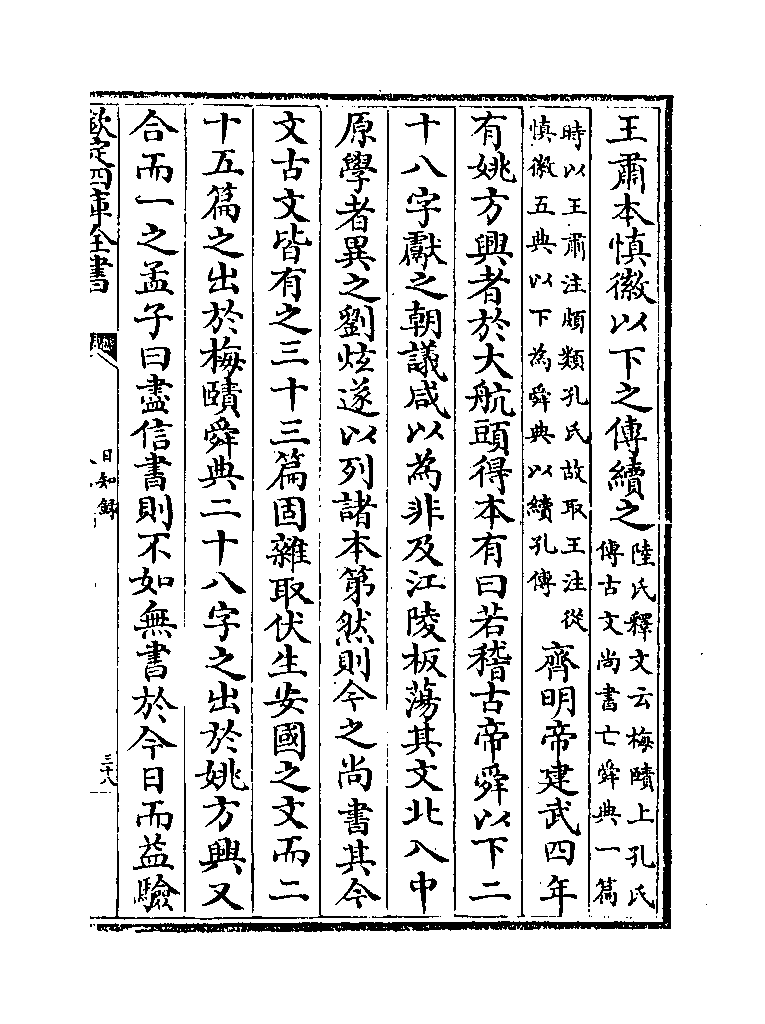 王肅本慎徽以下之傳續之陸氏釋文云梅賾上孔氏傳古文尚書亡舜典一篇
時以王肅注頗類孔氏故取王注從慎徽五典以下為舜典以續孔傳齊明帝建武四年
有姚方興者於大航頭得本有曰若稽古帝舜以下二
十八字獻之朝議咸以為非及江陵板蕩其文北入中
原學者異之劉炫遂以列諸本第然則今之尚書其今
文古文皆有之三十三篇固雜取伏生安國之文而二
十五篇之出於梅賾舜典二十八字之出於姚方興又
合而一之孟子曰盡信書則不如無書於今日而益驗
欽定四庫全書
日知錄
三十八